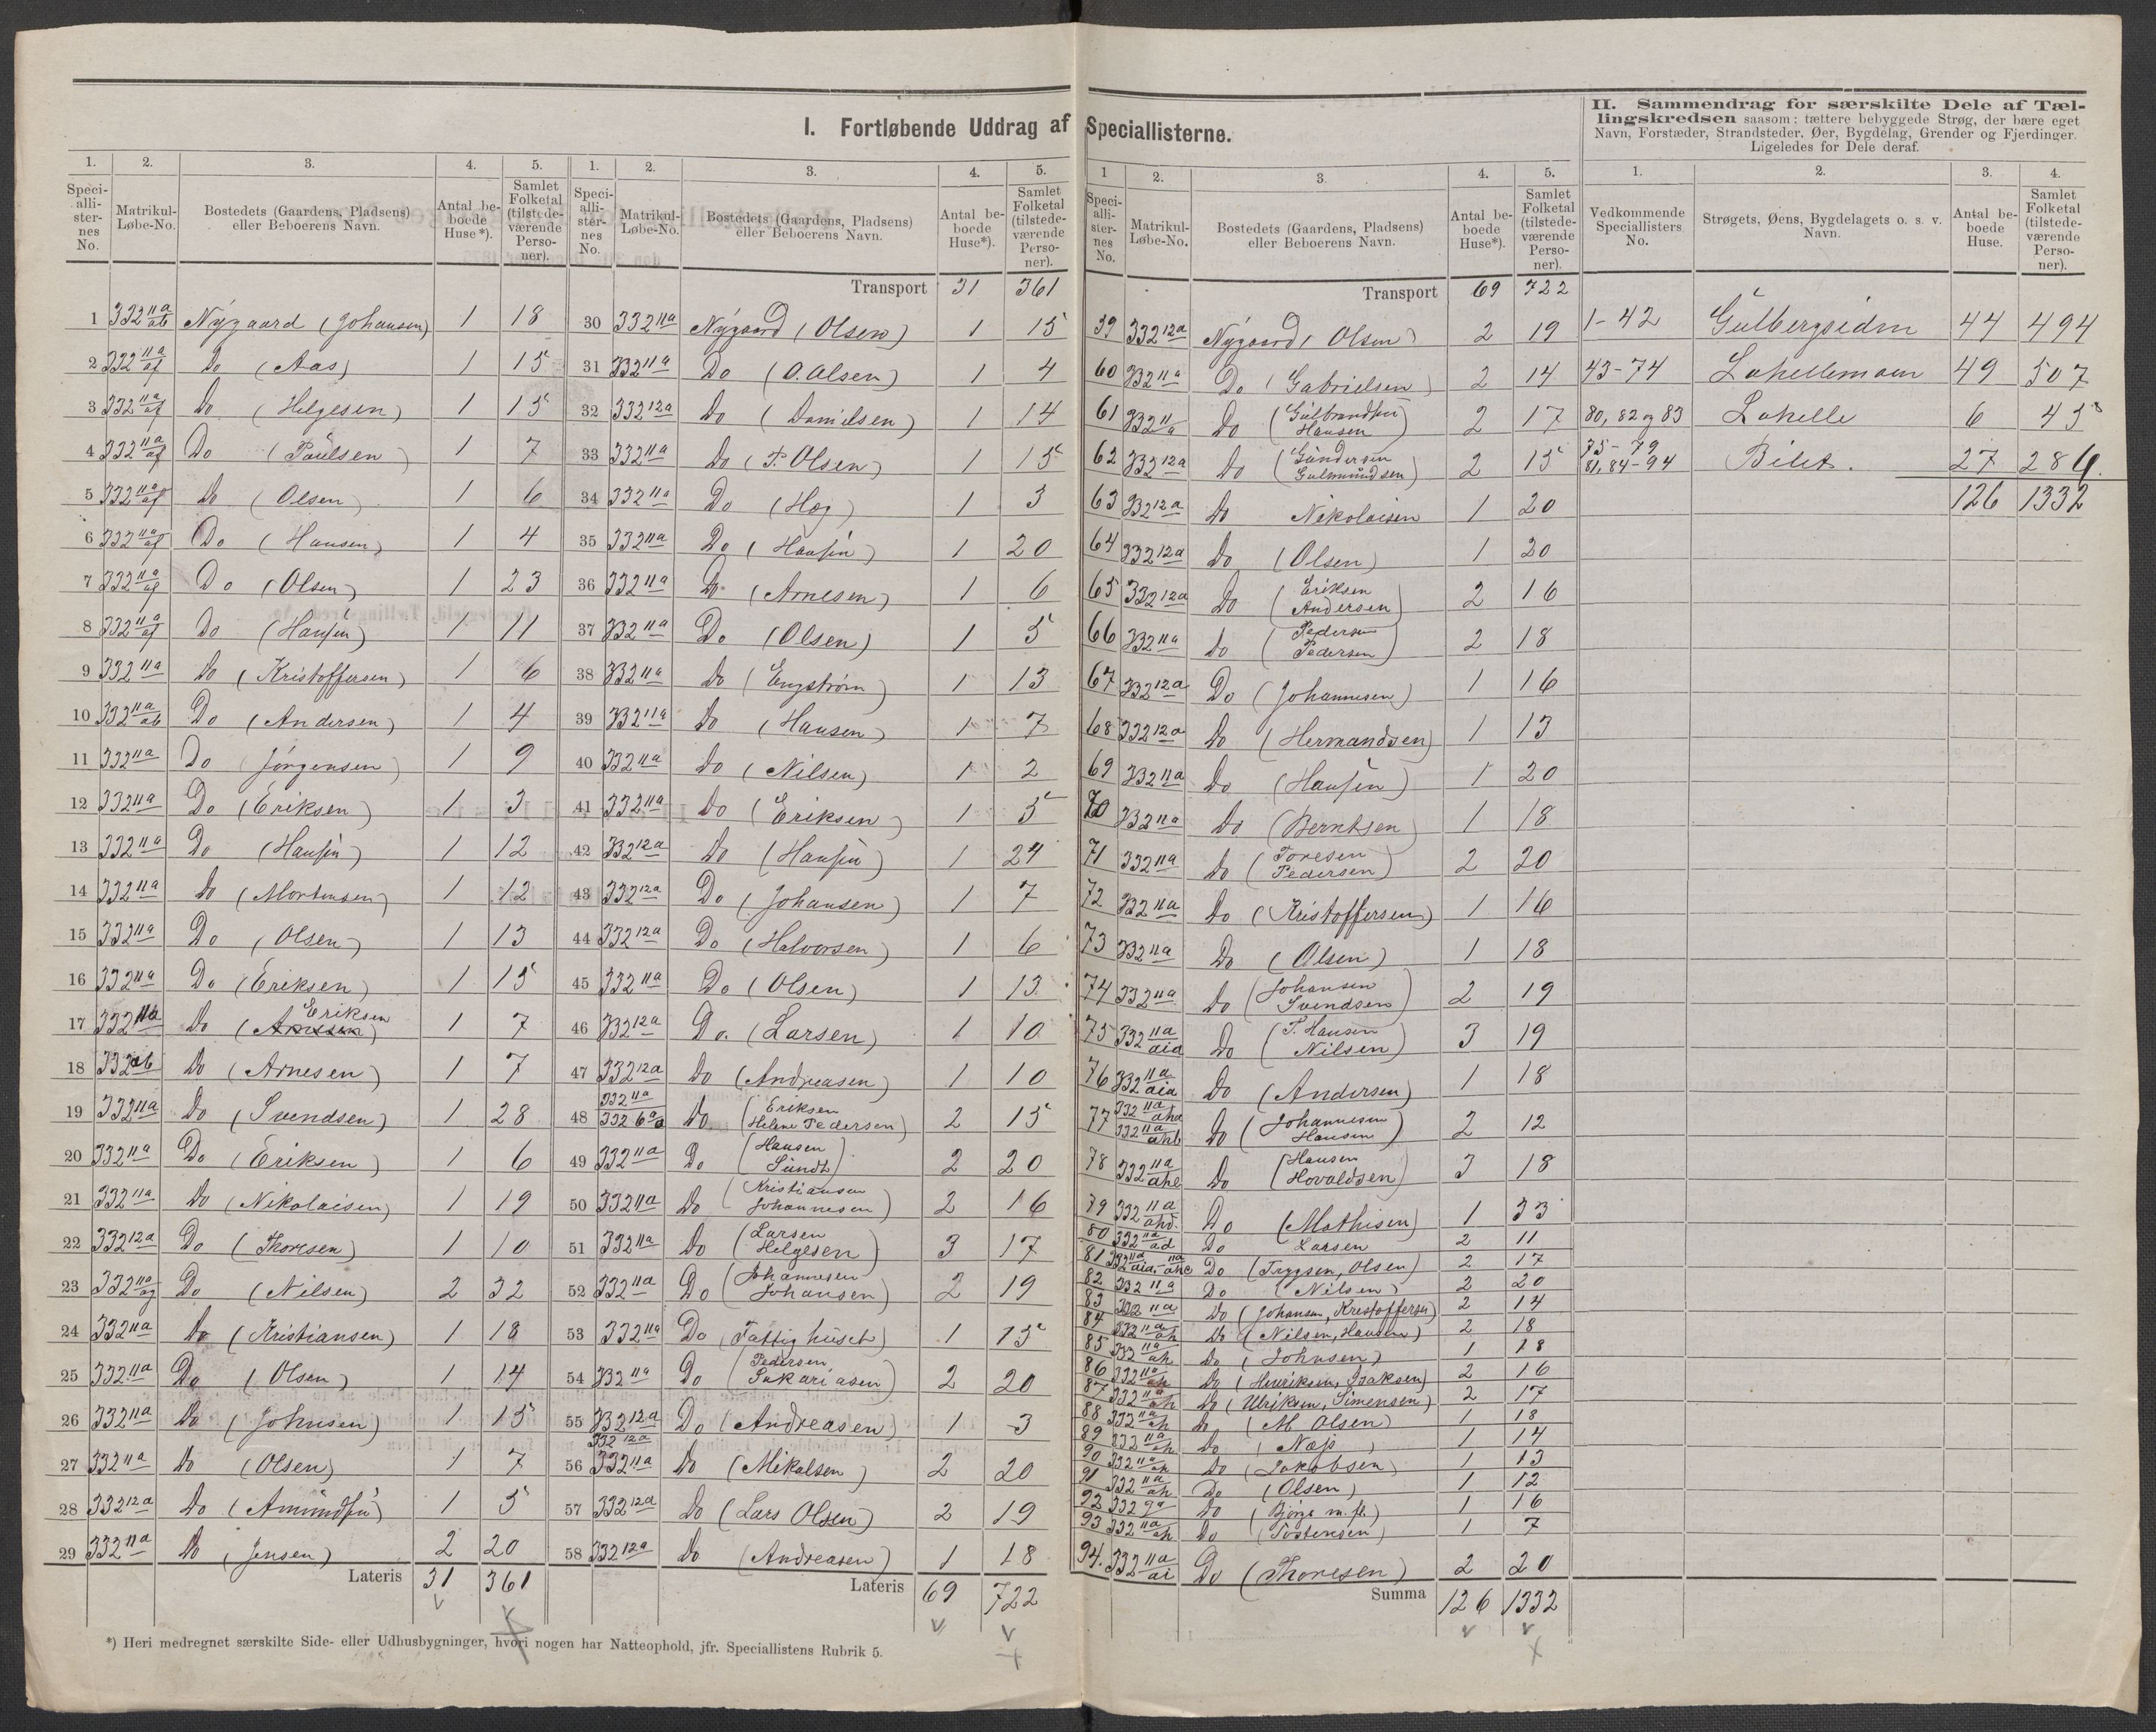 I. Fortløbende Uddrag af Speciallisterne.
1. 2. 3. 4. 5.
Specialli-sternes No. Matrikul-Løbe-No. Bostedets (Gaardens, Pladsens) eller Beboerens Navn. Antal beboede Huse*). Samlet Folketal (tilstedeværende Personer).
1 332 11a/ab Nygaard (Johansen) 1 18
2 332 11a/af Do (Aas) 1 15
3 332 11a/af Do (Helgesen) 1 15
4 332 11a/af Do (Paulsen) 1 7
5 332 11a/af Do (Olsen) 1 6
6 332 11a/af Do (Hansen) 1 4
7 332 11a/af Do (Olsen) 1 23
8 332 11a/af Do (Hansen) 1 11
9 332 11a Do (Kristoffersen) 1 6
10 332 11a/ab Do (Andersen) 1 4
11 332 11a Do (Jörgensen) 1 9
12 332 11a Do (Eriksen) 1 3
13 332 11a Do (Hansen) 1 12
14 332 11a Do (Mortensen) 1 12
15 332 11a Do (Olsen) 1 13
16 332 11a Do (Eriksen) 1 15
17 332 11a Do (Eriksen) 1 7
18 332 ab Do (Arnesen) 1 7
19 332 11a Do (Svendsen) 1 28
20 332 11a Do (Eriksen) 1 6
21 332 11a Do (Nikolaisen) 1 19
22 332 12a Do (Thoresen) 1 10
23 332 11a/ag Do (Nilsen) 2 32
24 332 11a Do (Kristiansen) 1 18
25 332 11a Do (Olsen) 1 14
26 332 11a Do (Johnsen) 1 15
27 332 11a Do (Olsen) 1 7
28 332 12a Do (Amundsen) 1 5
29 332 11a Do (Jensen) 2 20
Lateris 31 361
1. 2. 3. 4. 5.
Specialli-sternes No. Matrikul-Løbe-No. Bostedets (Gaardens, Pladsens) eller Beboerens Navn. Antal beboede Huse*). Samlet Folketal (tilstedeværende Personer).
Transport 31 361
30 332 11a Nygaard (Olsen) 1 15
31 332 11a Do (O. Olsen) 1 4
32 332 12a Do (Danielsen) 1 14
33 332 11a Do (P. Olsen) 1 15
34 332 11a Do (Hög) 1 3
35 332 11a Do (Hansen) 1 20
36 332 11a Do (Arnesen) 1 6
37 332 11a Do (Olsen) 1 5
38 332 11a Do (Engström) 1 13
39 332 11a Do (Hansen) 1 7
40 332 11a Do (Nilsen) 1 2
41 332 11a Do (Eriksen) 1 5
42 332 12a Do (Hansen) 1 24
43 332 12a Do (Johansen) 1 7
44 332 12a Do (Halvorsen) 1 6
45 332 11a Do (Olsen) 1 13
46 332 12a Do. (Larsen) 1 10
47 332 12a Do (Andreasen) 1 10
48 332 11a 332 6a Do (Eriksen Helene Pedersen) 2 15
49 332 11a Do (Hansen Sundt) 2 20
50 332 11a Do (Kristiansen Johannesen) 2 16
51 332 11a Do (Larsen Helgesen) 3 17
52 332 11a Do (Johannesen Johansen) 2 19
53 332 11a Do (Fattighuset) 1 15
54 332 11a Do (Pedersen Sakariasen) 2 20
55 332 12a Do (Andreasen) 1 3
56 332 12a 332 11a Do (Mikalsen) 2 20
57 332 12a Do (Lars Olsen) 2 19
58 332 12a Do (Andreasen) 1 18
Lateris 69 722
*) Heri medregnet særskilte Side- eller Udhusbygninger, hvori nogen har Natteophold, jfr. Speciallistens Rubrik 5.
1 2. 3. 4. 5.
Specialli-sternes No. Matrikul-Løbe-No. Bostedets (Gaardens, Pladsens) eller Beboerens Navn. Antal beboede Huse*). Samlet Folketal (tilstedeværende Personer).
Transport 69 722
59 332 12a Nygaard (Olsen) 2 19
60 332 11a Do (Gabrielsen) 2 14
61 332 11a Do (Gulbrandsen Hansen) 2 17
62 332 12a Do (Gundersen Gulmundsen) 2 15
63 332 12a Do Nikolaisen 1 20
64 332 12a Do (Olsen) 1 20
65 332 12a Do (Eriksen Andersen) 2 16
66 332 11a Do (Pedersen Pedersen) 2 18
67 332 12a Do (Johannesen) 1 16
68 332 12a Do (Hermandsen) 1 13
69 332 11a Do (Hansen) 1 20
70 332 11a Do (Berntsen) 1 18
71 332 11a Do (Toresen Pedersen) 2 20
72 332 11a Do (Kristoffersen) 1 16
73 332 11a Do (Olsen) 1 18
74 332 11a Do (Johansen Svendsen) 2 19
75 332 11a/aia Do (P. Hansen Nilsen) 3 19
76 332 11a/aia Do (Andersen) 1 18
77 332 11a/aha 332 11a/ahb Do (Johannesen Hansen) 2 12
78 332 11a/ahc Do (Hansen Hovaldsen) 3 18
79 332 11a/ahd. Do (Mathisen) 1 33
80 332 11a/ad Do Larsen 2 11
81 332 11a/aia, 11a/ahc Do (Trygsen, Olsen) 2 17
82 332 11a Do (Nilsen) 2 20
83 332 11a Do (Johansen, Kristoffersen) 2 14
84 332 11a/ah Do (Nilsen, Hansen) 2 18
85 332 11a/ah Do (Johnsen) 1 18
86 332 11a/ah Do (Henriksen, Isaksen) 2 16
87 332 11a/ah Do (Ulriksen, Simensen) 2 17
88 332 11a/ah Do (M Olsen) 1 18
89 332 11a/ah Do (Næs) 1 14
90 332 11a/ah Do (Jakobsen) 1 13
91 332 11a/ah Do (Olsen) 1 12
92 332 9a Do (Björge m. fl.) 1 16
93 332 11a/ah Do (Tostensen) 1 7
94. 332 11a/ai Do (Thoresen) 2 20
Summa 126 1332
II. Sammendrag for særskilte Dele af Tællingskredsen saasom: tættere bebyggede Strøg, der bære eget
Navn, Forstæder, Strandsteder, Øer, Bygdelag, Grender og Fjerdinger.
Ligeledes for Dele deraf.
1. 2. 3. 4.
Vedkommende Speciallisters No. Strøgets, Øens, Bygdelagets o. s. v. Navn. Antal beboede Huse. Samlet Folketal (tilstedeværende Personer).
1-42 Gulbergsiden 44 494
43-74 Lahellemoen 49 507
80, 82 og 83 Lahelle 6 45
75-79 81, 84-94 Bilet. 27 286.
126 1332